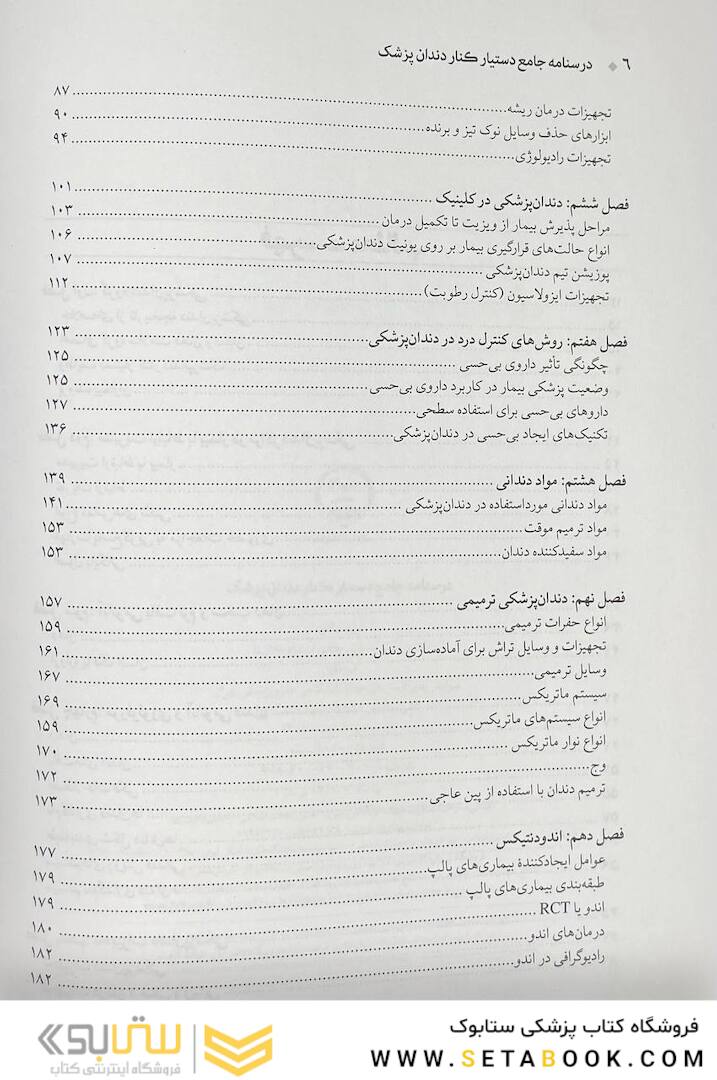 ۶ ◆ درسنامه جامع دستیار کنار دندان پزشک
تجهیزات درمان ریشه ........ ۸۷
ابزارهای حذف وسایل نوک تیز و برنده ........ ۹۰
تجهیزات رادیولوژی ........ ۹۴
فصل ششم: دندان‌پزشکی در کلینیک ........ ۱۰۱
مراحل پذیرش بیمار از ویزیت تا تکمیل درمان ........ ۱۰۳
انواع حالت‌های قرارگیری بیمار بر روی یونیت دندان‌پزشکی ........ ۱۰۶
پوزیشن تیم دندان‌پزشکی ........ ۱۰۷
تجهیزات ایزولاسیون (کنترل رطوبت) ........ ۱۱۲
فصل هفتم: روش‌های کنترل درد در دندان‌پزشکی ........ ۱۲۳
چگونگی تأثیر داروی بی‌حسی ........ ۱۲۵
وضعیت پزشکی بیمار در کاربرد داروی بی‌حسی ........ ۱۲۵
داروهای بی‌حسی برای استفاده سطحی ........ ۱۲۷
تکنیک‌های ایجاد بی‌حسی در دندان‌پزشکی ........ ۱۳۶
فصل هشتم: مواد دندانی ........ ۱۳۹
مواد دندانی مورداستفاده در دندان‌پزشکی ........ ۱۴۱
مواد ترمیم موقت ........ ۱۵۳
مواد سفیدکننده دندان ........ ۱۵۳
فصل نهم: دندان‌پزشکی ترمیمی ........ ۱۵۷
انواع حفرات ترمیمی ........ ۱۵۹
تجهیزات و وسایل تراش برای آماده‌سازی دندان ........ ۱۶۱
وسایل ترمیمی ........ ۱۶۷
سیستم ماتریکس ........ ۱۶۹
انواع سیستم‌های ماتریکس ........ ۱۵۹
انواع نوار ماتریکس ........ ۱۷۰
وج ........ ۱۷۲
ترمیم دندان با استفاده از پین عاجی ........ ۱۷۳
فصل دهم: اندودنتیکس ........ ۱۷۷
عوامل ایجادکنندهٔ بیماری‌های پالپ ........ ۱۷۹
طبقه‌بندی بیماری‌های پالپ ........ ۱۷۹
اندو یا RCT ........ ۱۸۰
درمان‌های اندو ........ ۱۸۲
رادیوگرافی در اندو ........ ۱۸۲
فروشگاه کتاب پزشکی ستابوک
WWW.SETABOOK.COM
ستابوک
فروشگاه اینترنتی کتاب